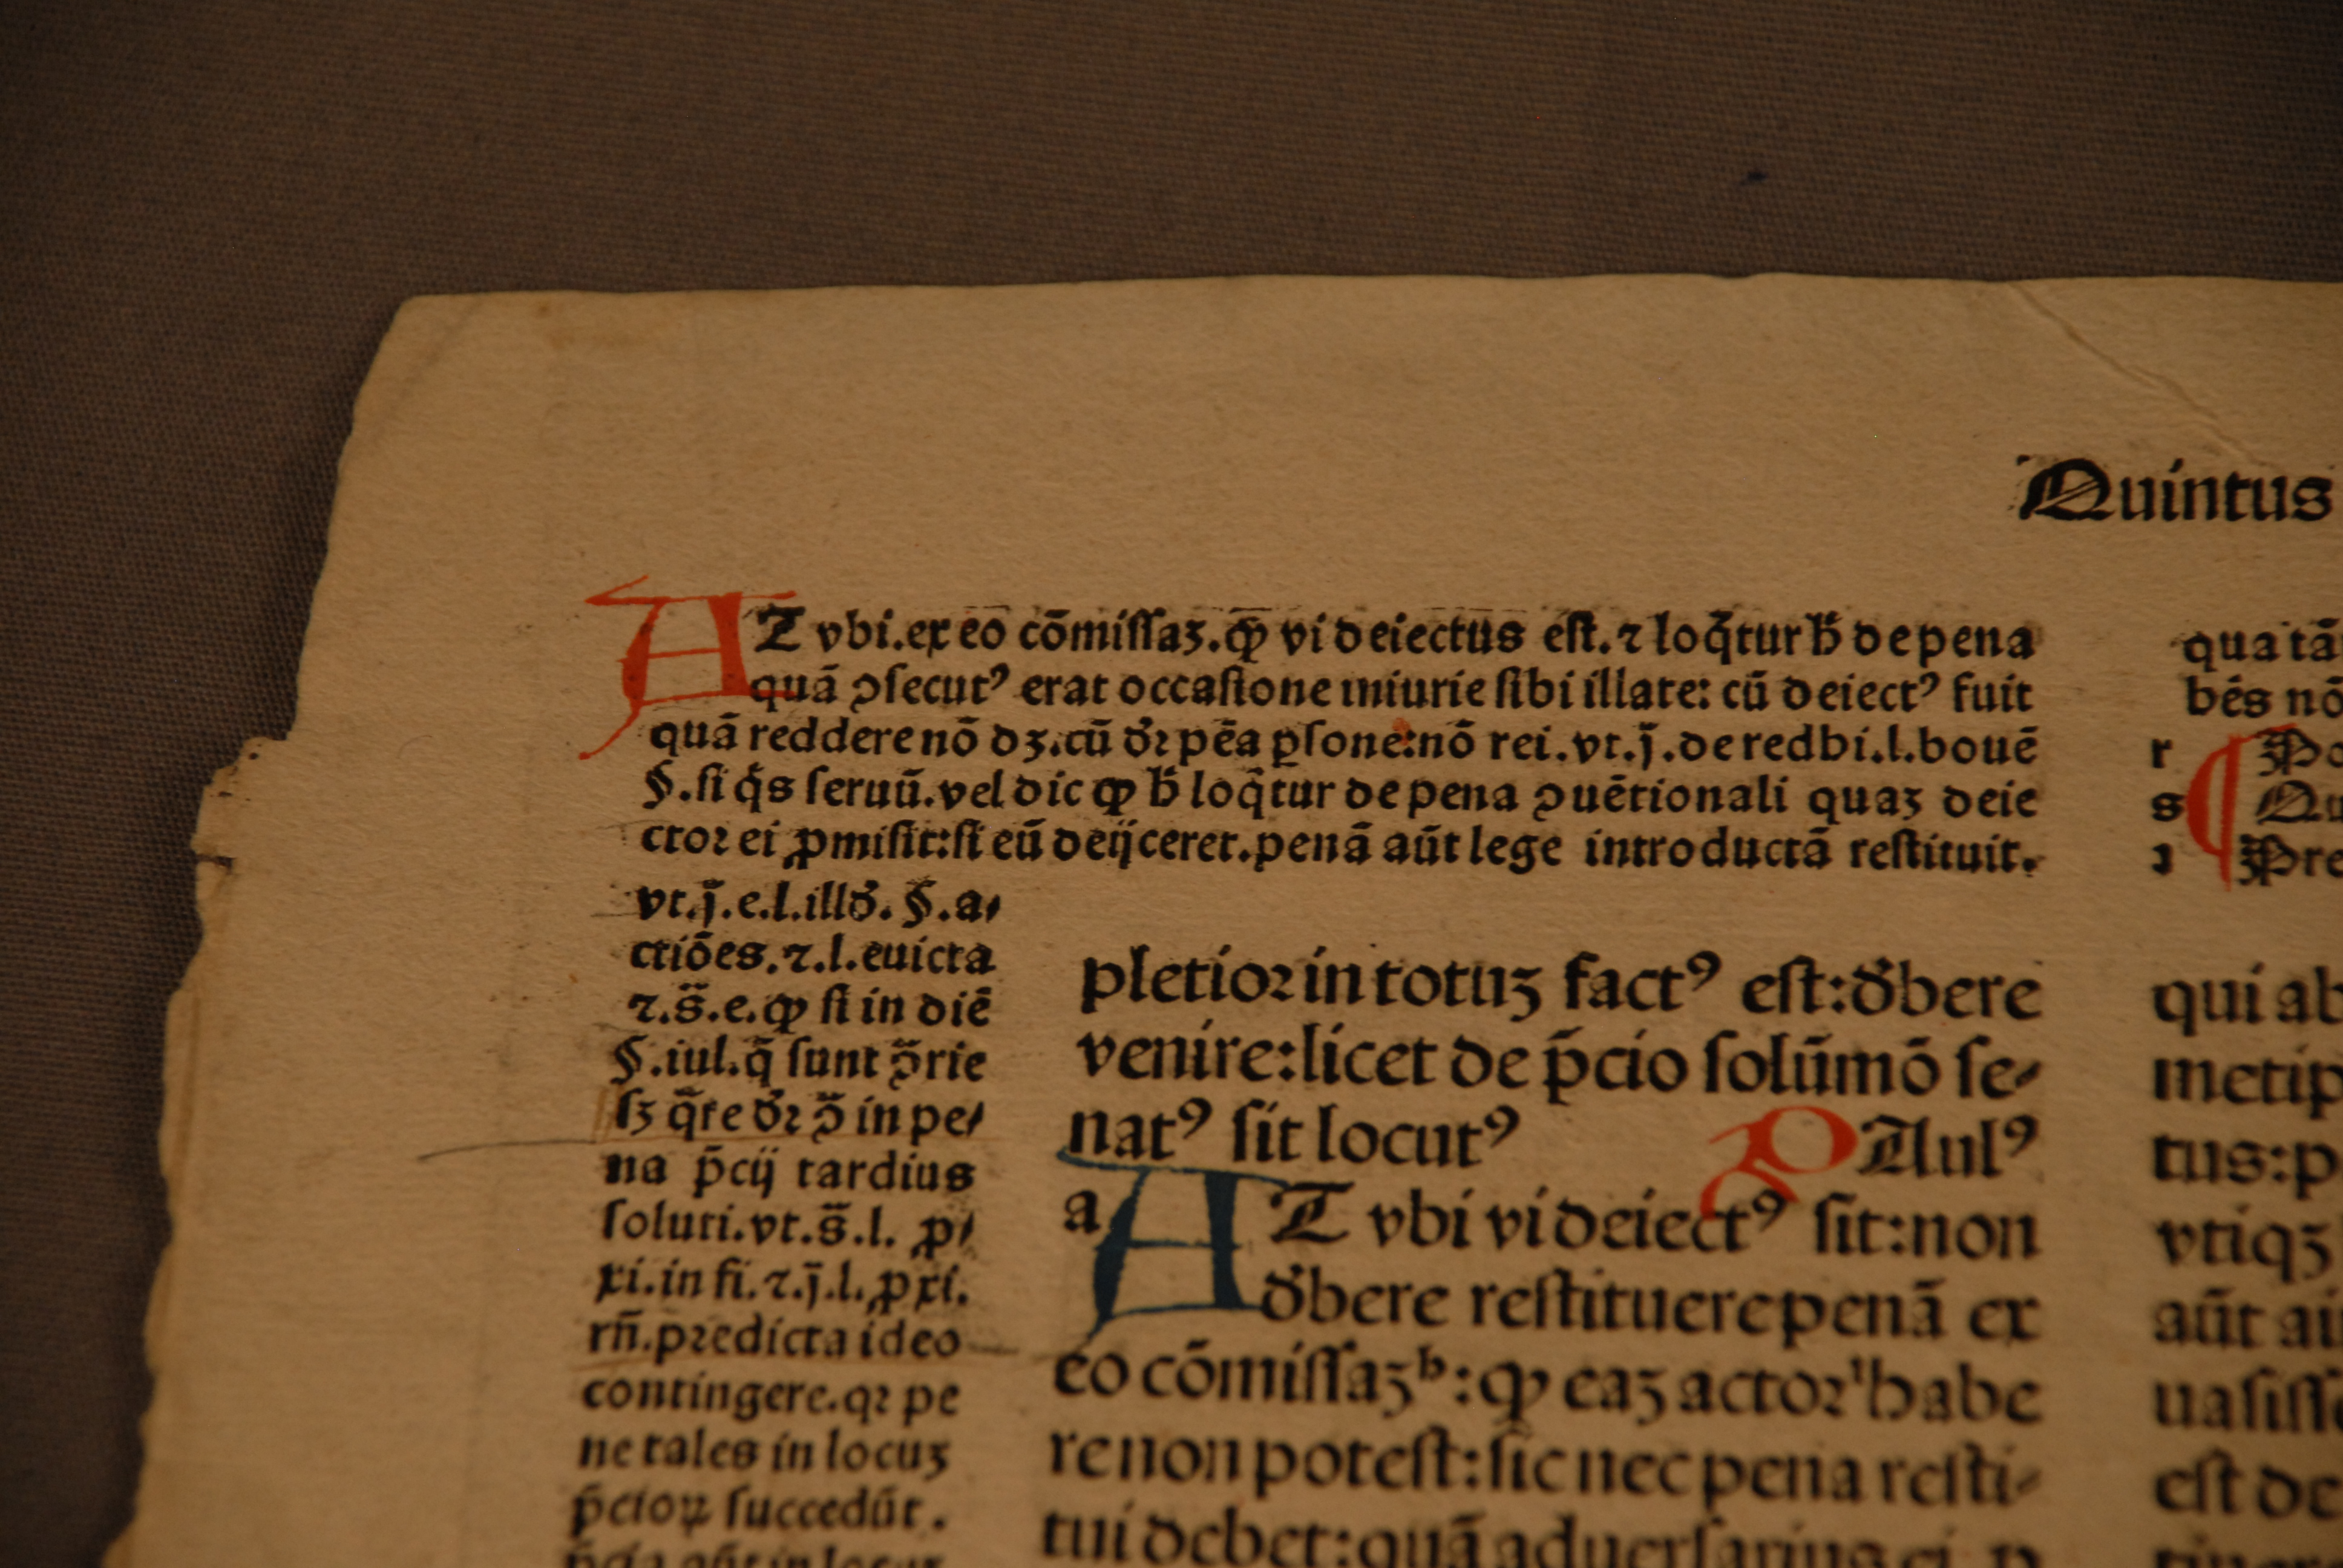 Quintus
AT vbi.ex eo cōmiſſaꝫ.ꝙ vi deiectus eſt.⁊ loq̄tur h̄ de pena
quā ꝯſecutꝰ erat occaſione iniurie ſibi illate: cū deiectꝰ fuit
quā reddere nō dꝫ.cū dr̄ pēa ꝑſone:nō rei.vt.j̄.de redbi.l.bouē
§.ſi q̇s ſeruū.vel dic ꝙ h̄ loq̄tur de pena ꝯuētionali quaꝫ deie
ctoꝛ ei ꝓmiſit:ſi eū deijceret.penā aūt lege introductā reſtituit.
vt.j̄.e.l.illd̄. §.a⸗
ctiōes.⁊.l.euicta
⁊.s̄.e.ꝙ ſi in diē
§.iul.q̄ ſunt ꝯ̄rie
ſꝫ q̄re dr̄ ꝯ̄ in pe⸗
na p̄cij tardius
ſoluti.vt.s̄.l. ꝓ⸗
xi.in fi.⁊.j̄.l.ꝓxi.
rn̄.pꝛedicta ideo
contingere.qꝛ pe
ne tales in locuꝫ
p̄cioꝝ ſuccedūt.
pletioꝛ in totuꝫ factꝰ eſt:d̄bere
venire:licet de p̄cio ſolūmō ſe⸗
natꝰ ſit locutꝰ PAulꝰ
a AT vbi vi deiectꝰ ſit:non
d̄bere reſtituere penā ex
eo cōmiſſaꝫᵇ:ꝙ eaꝫ actoꝛ habe
re non poteſt:ſic nec pena reſti⸗
tui debet:quā aduerſarius ei
qua tā
bēs nō
r ¶ Po
s Qu
ꝛ Pre
qui ab
metip
tus:p
vtiqꝫ
aūt ai
uaſiſſ
eſt de